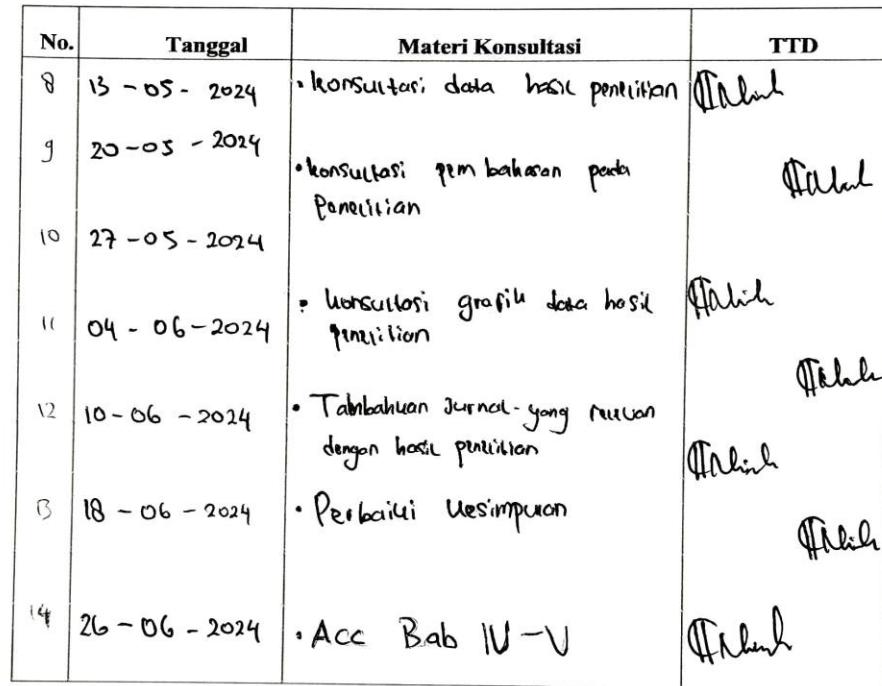 No. Tanggal Materi Konsultasi TTD
8 13 - 05 - 2024 • konsultasi data hasil penelitian
9 20 - 05 - 2024
• konsultasi pembahasan pada
Penelitian
10 27 - 05 - 2024
• konsultasi grafik data hasil
penelitian
11 04 - 06 - 2024
12 10 - 06 - 2024 • Tambahkan Jurnal - yang relevan
dengan hasil penelitian
13 18 - 06 - 2024 • Perbaiki kesimpulan
14 26 - 06 - 2024 • Acc Bab IV - V